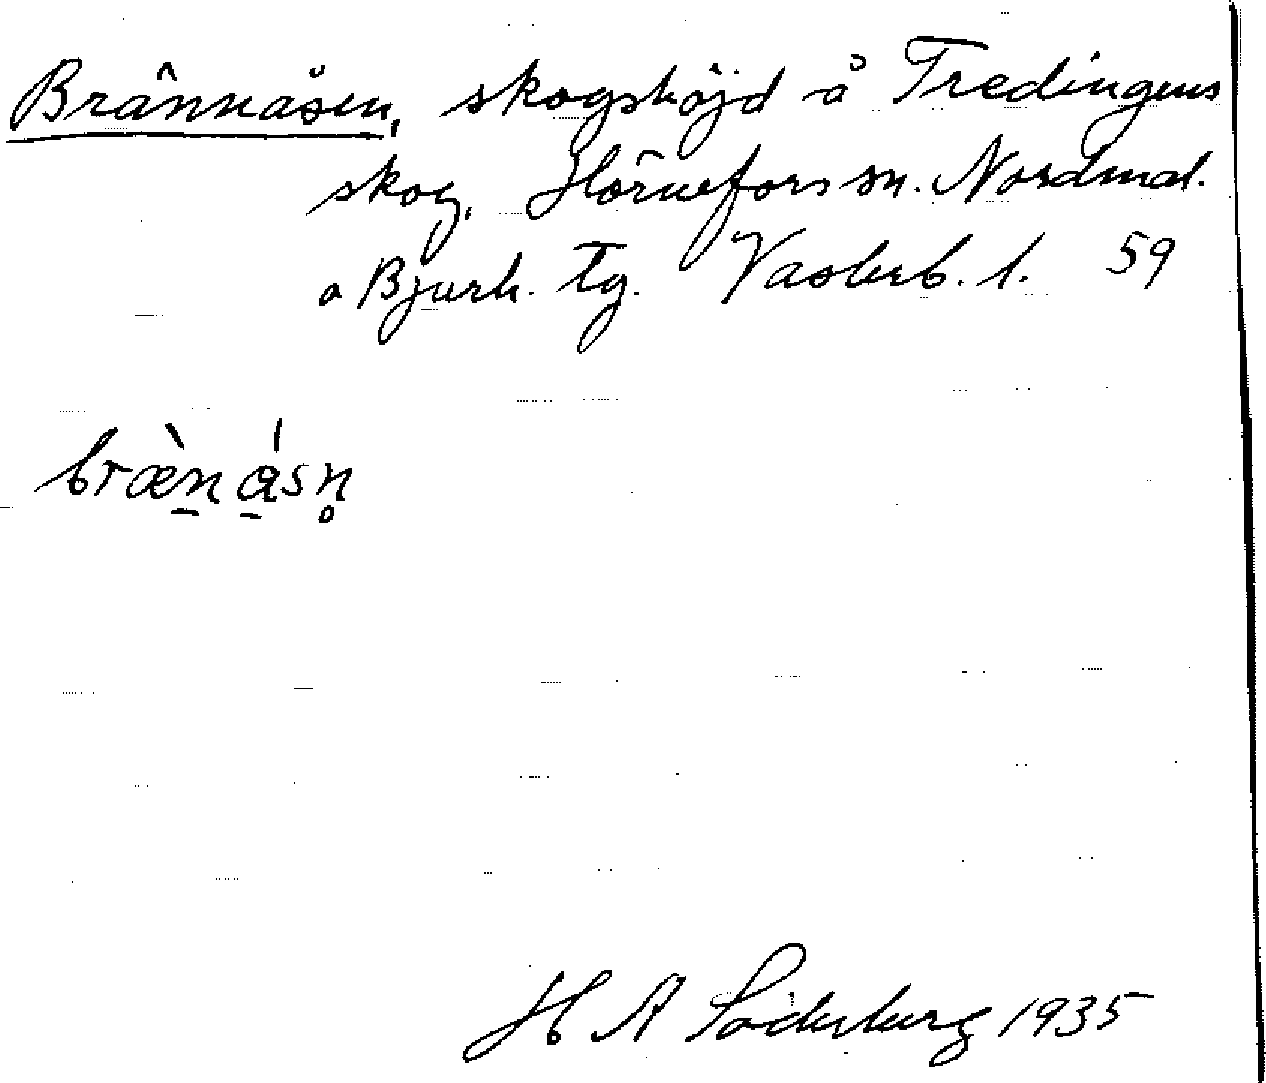 Brännåsen, skogshöjd å Tredingens
skog, Hörnefors sn. Nordmal.
o Bjurh. tg. Västerb. l. 59
bræ̀n ásn̥
H A Söderberg 1935